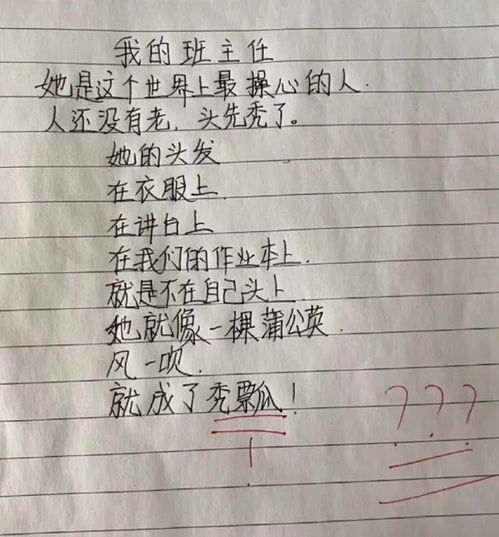 我的班主任
她是这个世界上最操心的人.
人还没有老，头先秃了。
她的头发
在衣服上
在讲台上
在我们的作业本上.
就是不在自己头上
她就像一棵蒲公英.
风一吹.
就成了秃瓢！
！
???